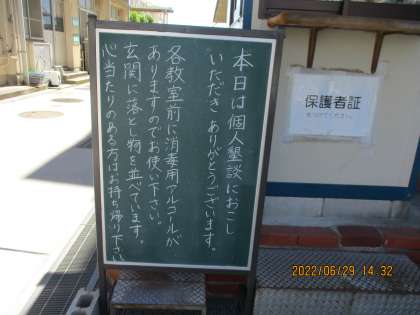 本日は個人懇談におこし
いただき ありがとうございます。
各教室前に消毒用アルコールが
ありますのでお使い下さい。
玄関に落とし物を並べています。
心当たりのある方はお持ち帰り下さい
保護者証
をつけてください。
2022/06/29 14:32